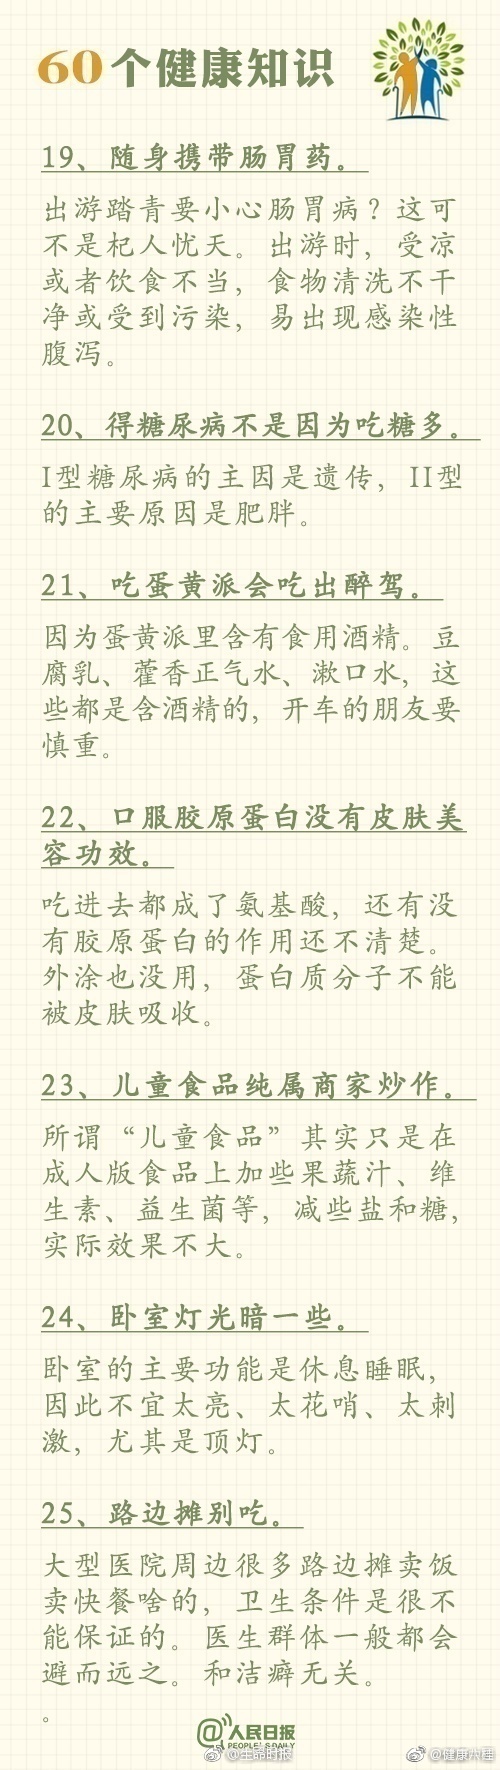 60个健康知识
19、随身携带肠胃药。
出游踏青要小心肠胃病？这可
不是杞人忧天。出游时，受凉
或者饮食不当，食物清洗不干
净或受到污染，易出现感染性
腹泻。
20、得糖尿病不是因为吃糖多。
I型糖尿病的主因是遗传，II型
的主要原因是肥胖。
21、吃蛋黄派会吃出醉驾。
因为蛋黄派里含有食用酒精。豆
腐乳、藿香正气水、漱口水，这
些都是含酒精的，开车的朋友要
慎重。
22、口服胶原蛋白没有皮肤美
容功效。
吃进去都成了氨基酸，还有没
有胶原蛋白的作用还不清楚。
外涂也没用，蛋白质分子不能
被皮肤吸收。
23、儿童食品纯属商家炒作。
所谓“儿童食品”其实只是在
成人版食品上加些果蔬汁、维
生素、益生菌等，减些盐和糖，
实际效果不大。
24、卧室灯光暗一些。
卧室的主要功能是休息睡眠，
因此不宜太亮、太花哨、太刺
激，尤其是顶灯。
25、路边摊别吃。
大型医院周边很多路边摊卖饭
卖快餐啥的，卫生条件是很不
能保证的。医生群体一般都会
避而远之。和洁癖无关。
。
@人民日报
PEOPLE'S DAILY
@生命时报
@健康大理